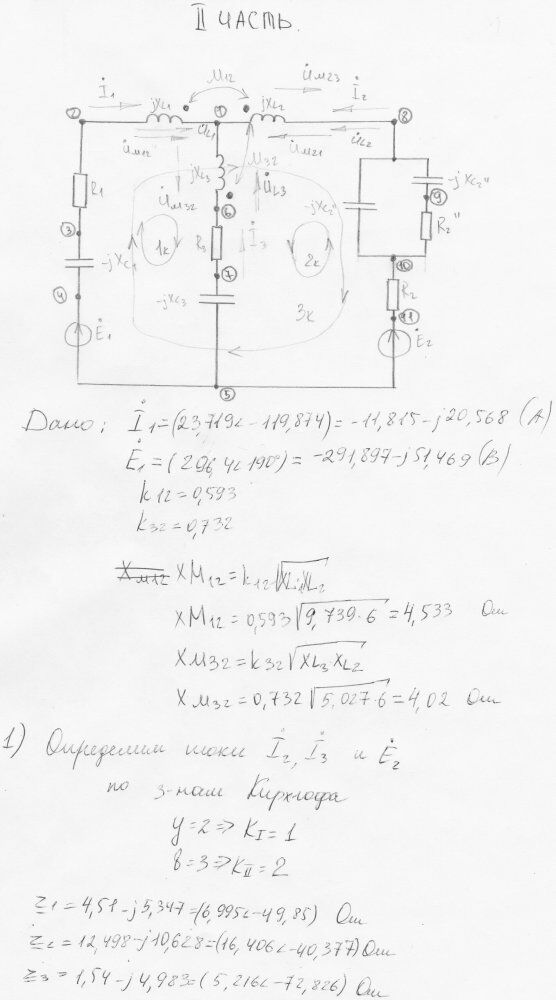 II ЧАСТЬ.
M12
U̇м23
İ1
jXL1
jXL2
İ2
2
1
8
U̇L1
U̇L2
U̇м12
U̇м21
M32
jXL3
U̇м32
U̇L3
R1
-jXc2''
-jXc2'
9
6
R2''
3
1к
R3
İ3
2к
-jXc1
7
10
4
-jXc3
3к
R2
11
Ė1
Ė2
5
Дано: İ1=(23,719∠-119,874)= -11,815-j20,568 (А)
Ė1=(296,4∠190°)= -291,897-j51,469 (В)
k12=0,593
k32=0,732
XM12=k12√XL1·XL2
XM12=0,593√9,739·6=4,533 Ом
Xм32=k32√XL3·XL2
Xм32=0,732√5,027·6=4,02 Ом
1) Определим токи İ2, İ3 и Ė2
по з-нам Кирхгофа
У=2=>KI=1
В=3=>KII=2
Z1=4,51-j5,347=(6,995∠-49,85) Ом
Z2=12,498-j10,628=(16,406∠-40,377) Ом
Z3=1,54-j4,983=(5,216∠-72,826) Ом